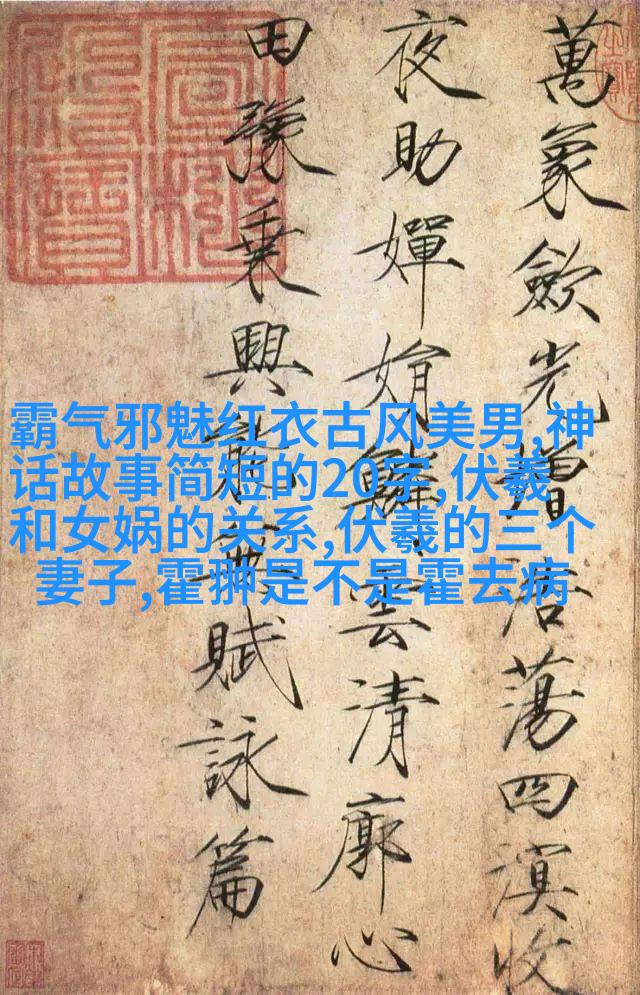 霸气邪魅红衣古风美男,神
话故事简短的20字,伏羲
和女娲的关系,伏羲的三个
妻子,霍翀是不是霍去病
萬象歛光增浩蕩四溟收
夜助嬋娟鱗雲清廓心
田豫乘興能無賦詠篇